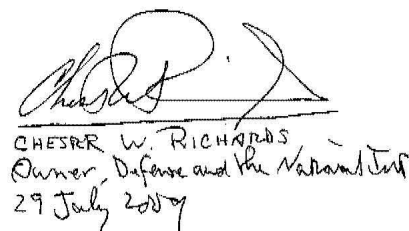 CHESTER W. RICHARDS
Owner, Defense and the National Int
29 July 2009